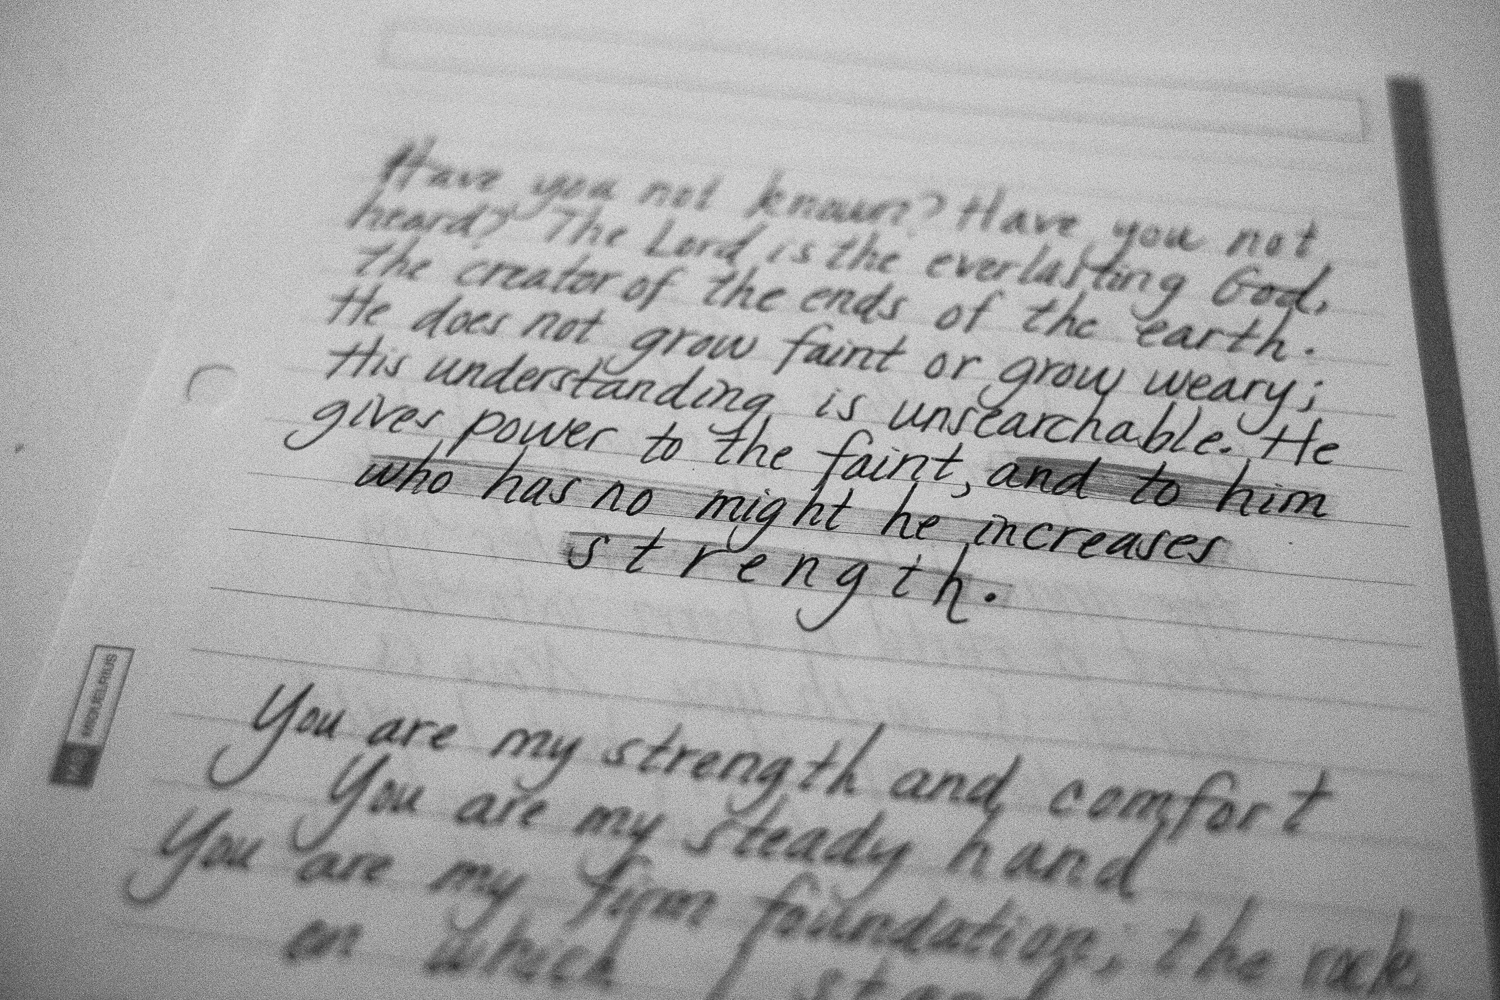 Have you not known? Have you not
heard? The Lord is the everlasting God,
the creator of the ends of the earth.
He does not grow faint or grow weary;
His understanding is unsearchable. He
gives power to the faint, and to him
who has no might he increases
strength.
MIQUELRIUS
You are my strength and comfort
You are my steady hand
You are my firm foundation; the rock
on which I stand